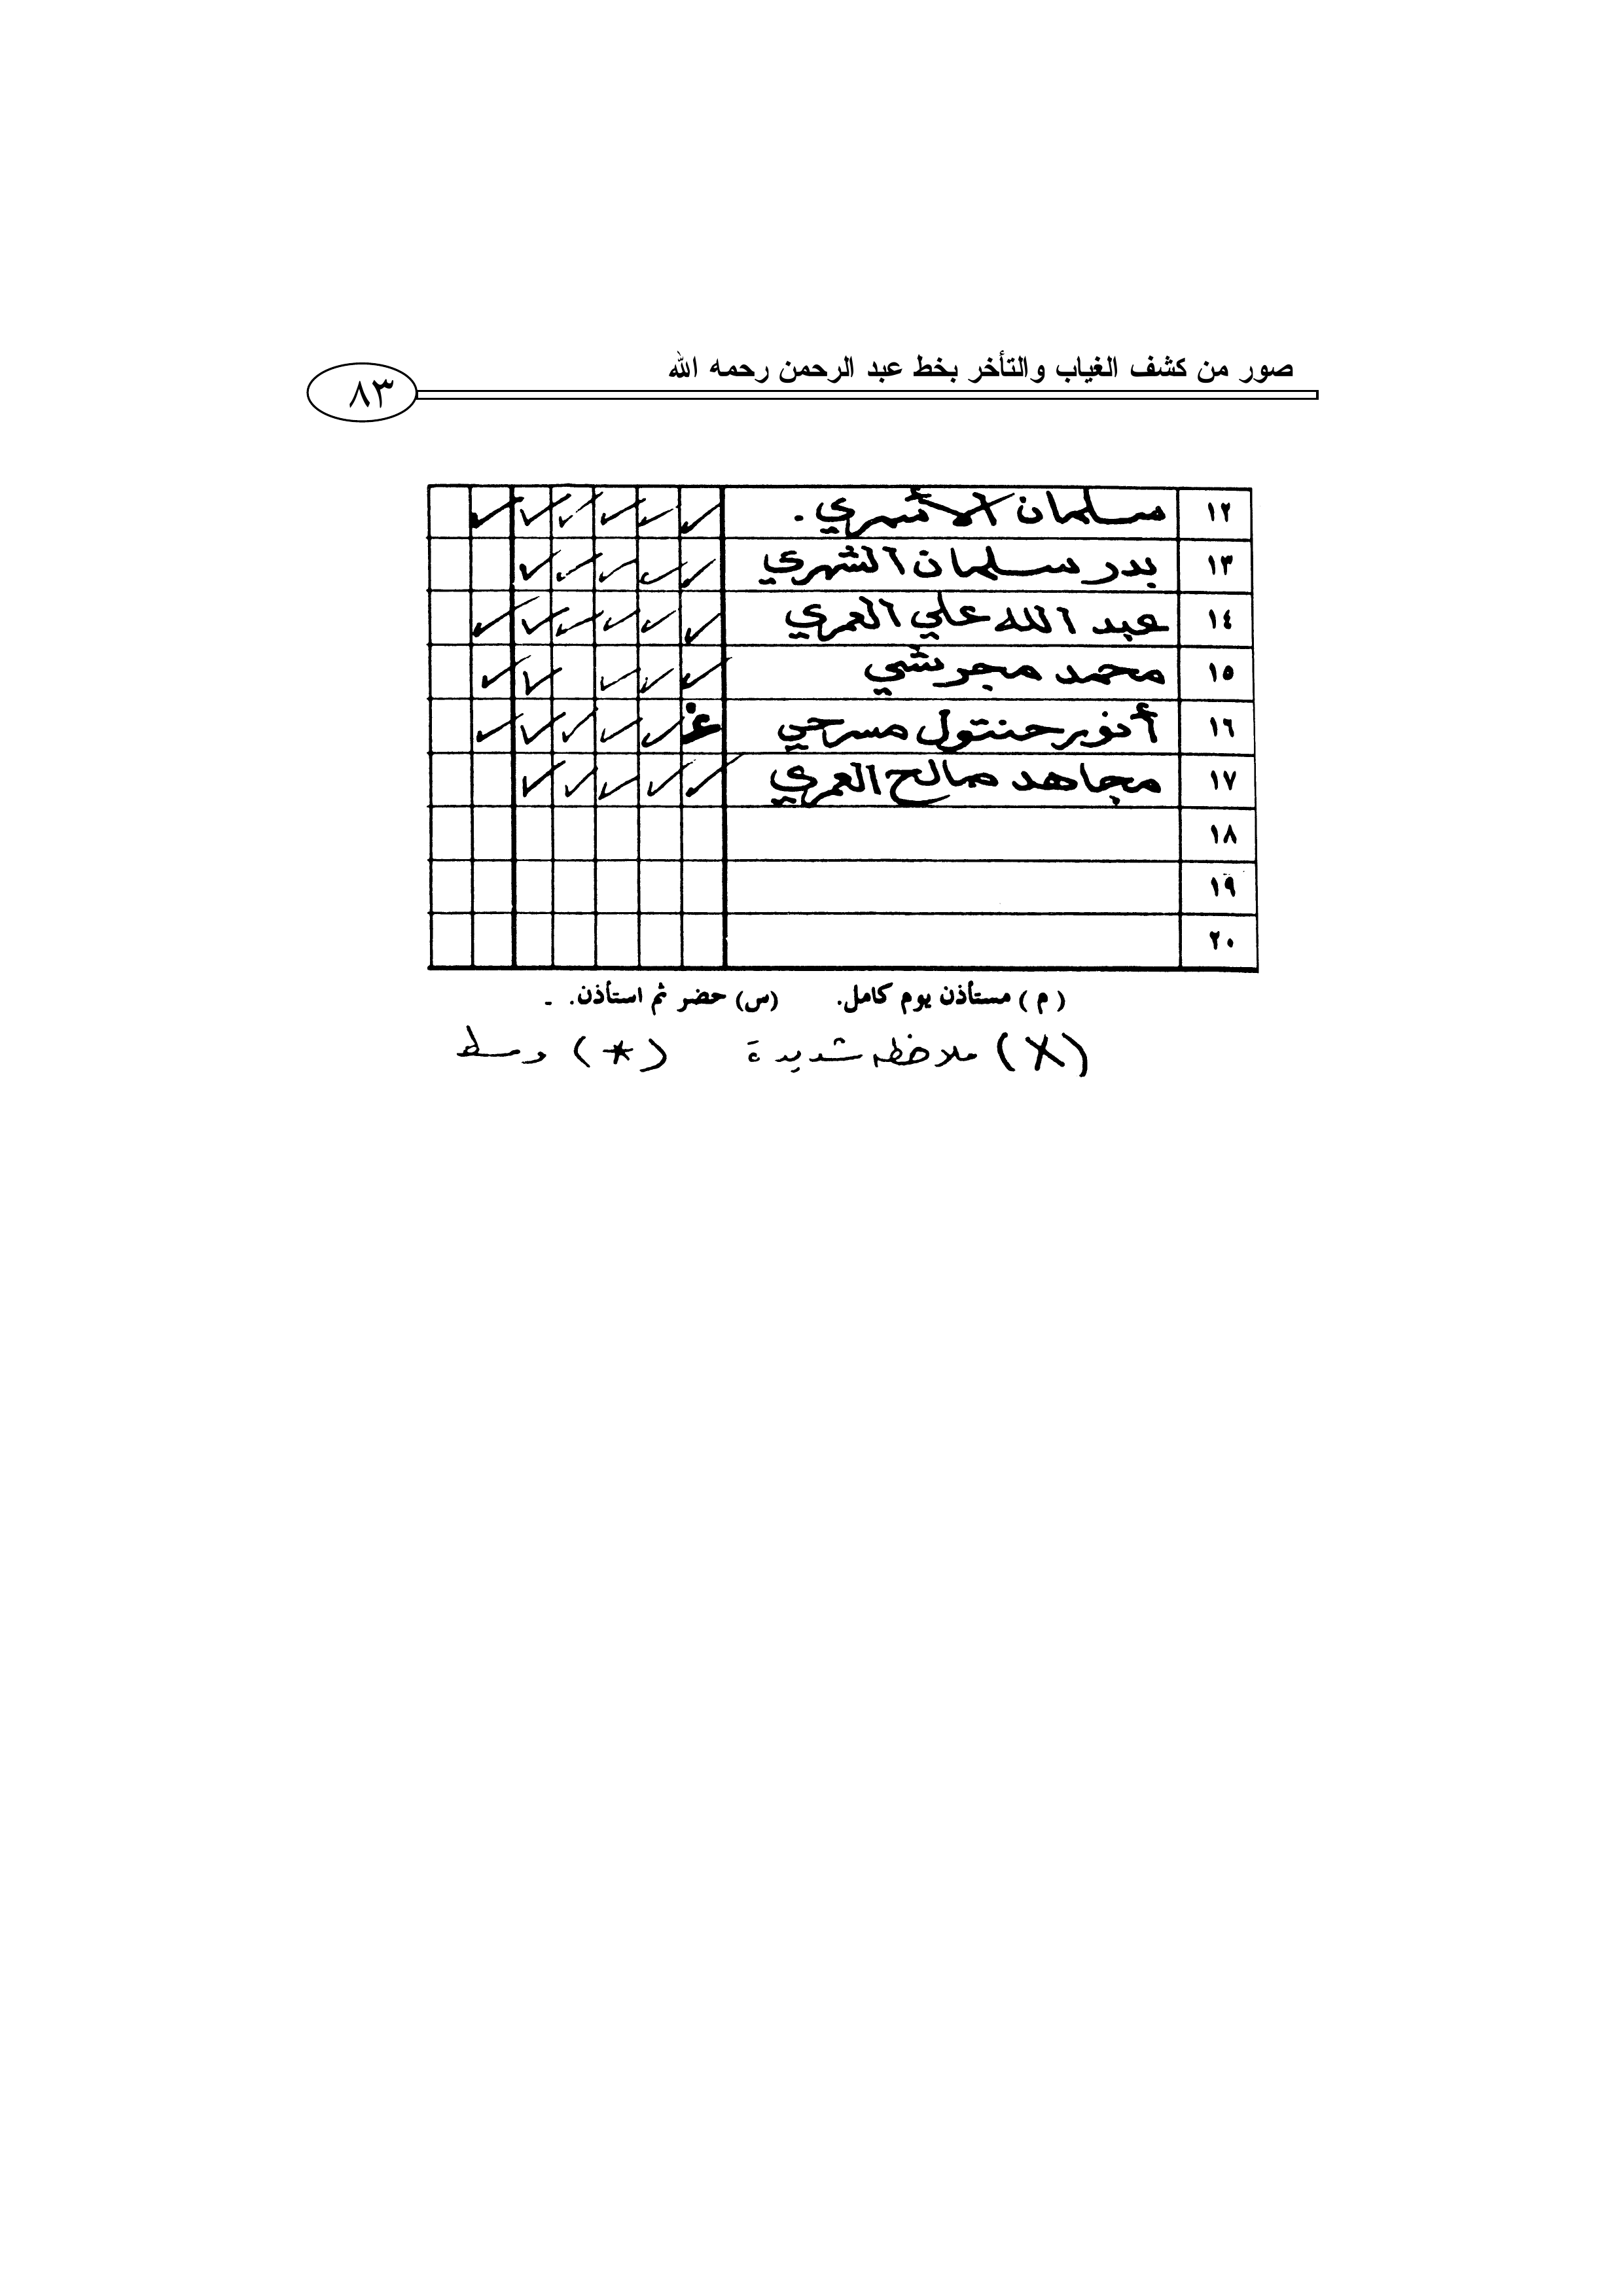 صور من كشف الغياب والتأخر بخط عبد الرحمن رحمه الله
٨٣
١٢ سلمان الأسمري. ✓ ✓ ✓ ✓ ✓ ✓
١٣ بدر سلمان الشهري ✓ ✓ ✓ ✓ ✓
١٤ عبد الله علي العمري ✓ ✓ ✓ ✓ ✓ ✓
١٥ محمد مجرشي ✓ ✓ ✓ ✓ ✓
١٦ حنتول مسرحي غ ✓ ✓ ✓ ✓ ✓
١٧ مجاهد صالح العمري ✓ ✓ ✓ ✓ ✓
١٨
١٩
٢٠
( م ) مستأذن يوم كامل. (س) حضر ثم استأذن. -
(X) ملاحظه شديدة (*) وسط